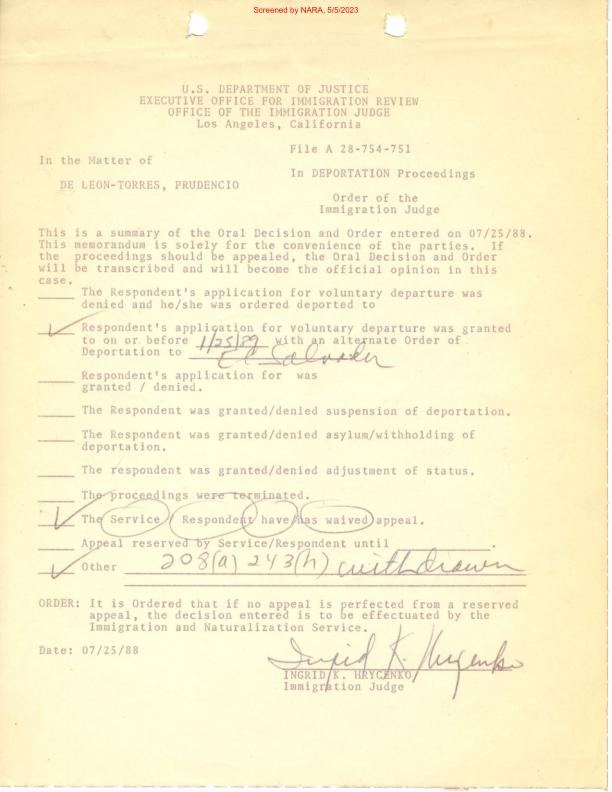 Screened by NARA, 5/5/2023
U.S. DEPARTMENT OF JUSTICE
EXECUTIVE OFFICE FOR IMMIGRATION REVIEW
OFFICE OF THE IMMIGRATION JUDGE
Los Angeles, California
File A 28-754-751
In the Matter of
In DEPORTATION Proceedings
DE LEON-TORRES, PRUDENCIO
Order of the
Immigration Judge
This is a summary of the Oral Decision and Order entered on 07/25/88.
This memorandum is solely for the convenience of the parties. If
the proceedings should be appealed, the Oral Decision and Order
will be transcribed and will become the official opinion in this
case.
The Respondent's application for voluntary departure was
denied and he/she was ordered deported to
Respondent's application for voluntary departure was granted
to on or before 1/25/89 with an alternate Order of
Deportation to El Salvador
Respondent's application for was
granted / denied.
The Respondent was granted/denied suspension of deportation.
The Respondent was granted/denied asylum/withholding of
deportation.
The respondent was granted/denied adjustment of status.
The proceedings were terminated.
The Service/ Respondent have/has waived appeal.
Appeal reserved by Service/Respondent until .
Other 208(a) 243(h) withdrawn
ORDER: It is Ordered that if no appeal is perfected from a reserved
appeal, the decision entered is to be effectuated by the
Immigration and Naturalization Service.
Date: 07/25/88
Ingrid K. Hrycenko
INGRID K. HRYCENKO
Immigration Judge